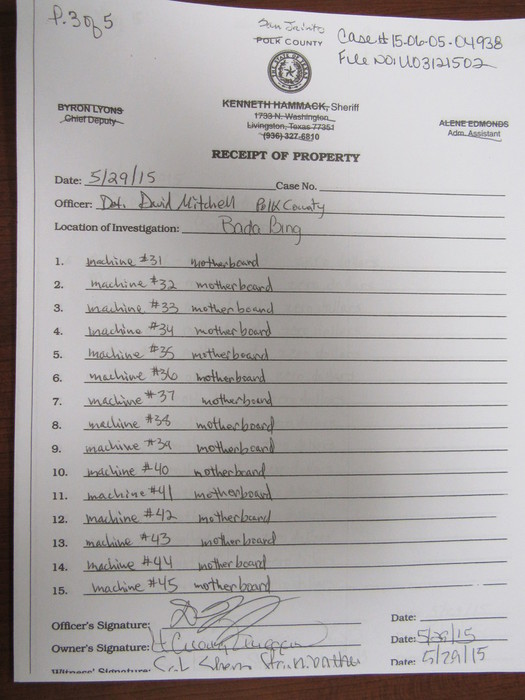 P. 3 of 5
San Jacinto
POLK COUNTY
Case# 15-06-05-04938
File NO: 1103121502
BYRON LYONS
Chief Deputy
KENNETH HAMMACK, Sheriff
1733 N. Washington
Livingston, Texas 77351
(936) 327-6810
ALENE EDMONDS
Adm. Assistant
RECEIPT OF PROPERTY
Date: 5/29/15 Case No.
Officer: Det. David Mitchell Polk County
Location of Investigation: Bada Bing
1. machine #31 motherboard
2. machine #32 motherboard
3. machine #33 motherboard
4. machine #34 motherboard
5. machine #35 motherboard
6. machine #36 motherboard
7. machine #37 motherboard
8. machine #38 motherboard
9. machine #39 motherboard
10. machine #40 motherboard
11. machine #41 motherboard
12. machine #42 motherboard
13. machine #43 motherboard
14. machine #44 motherboard
15. machine #45 motherboard
Officer's Signature: Date:
Owner's Signature: Date: 5/29/15
Witness' Signature: Date: 5/29/15